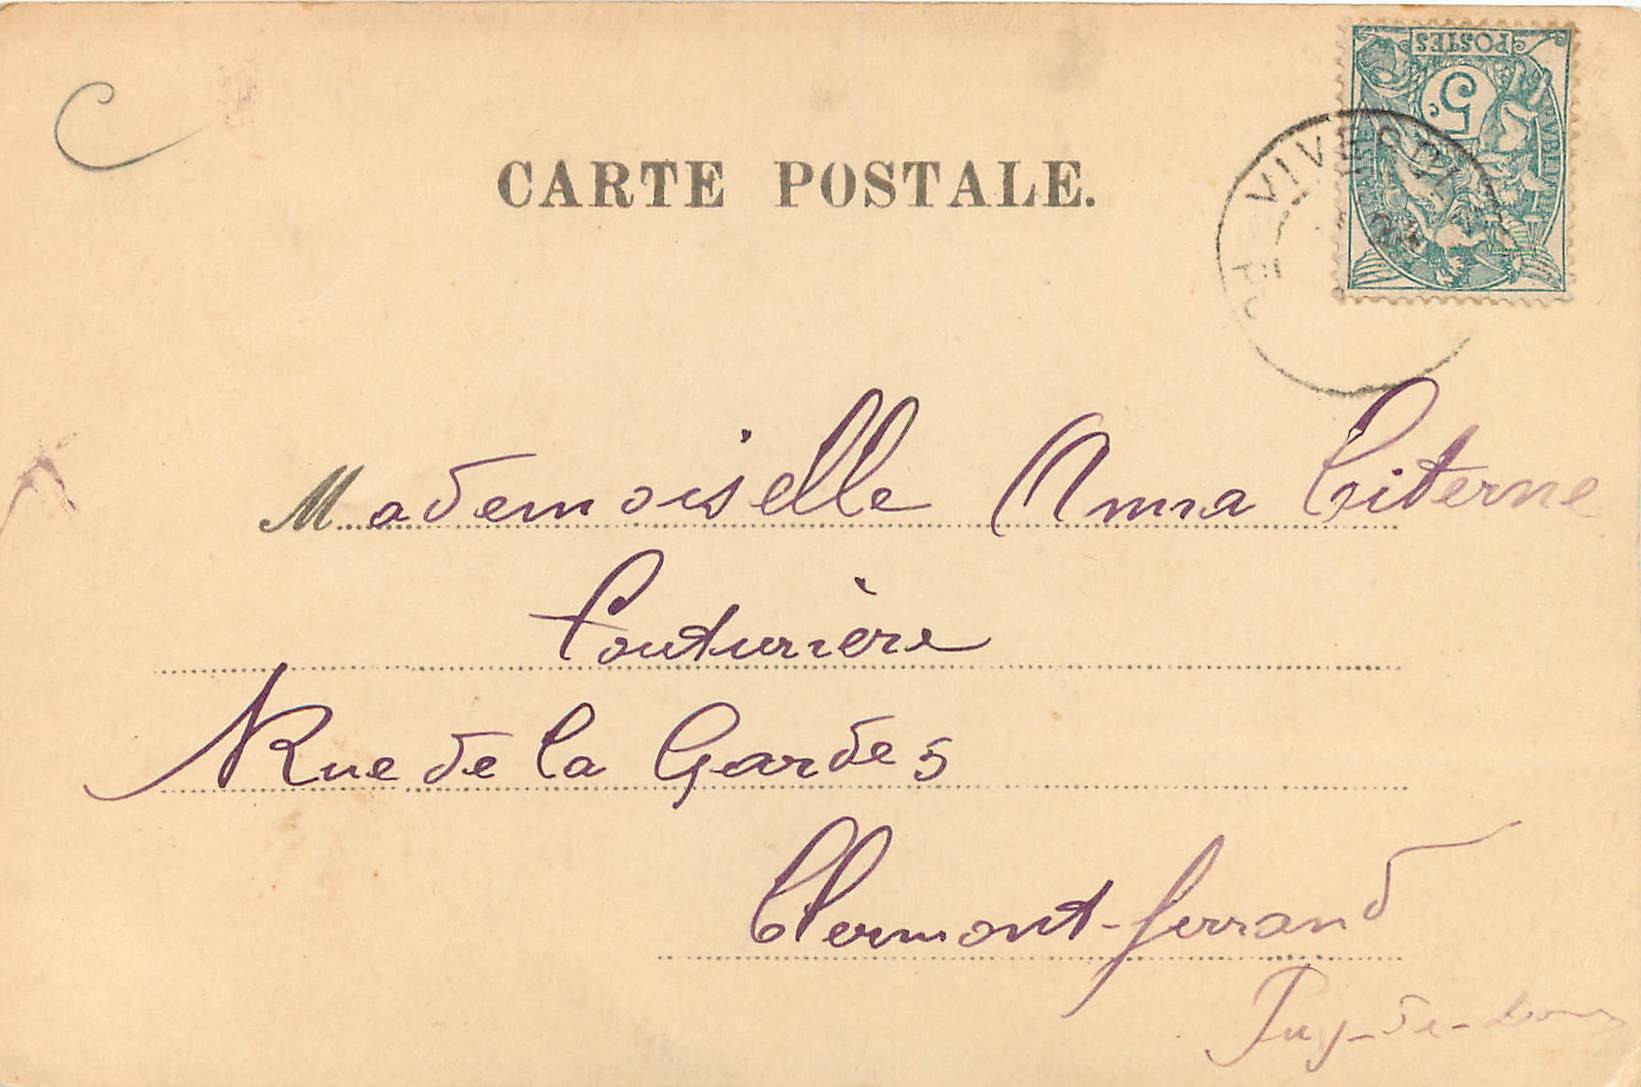 CARTE POSTALE.
POSTES
5c
VIVEROLS
Mademoiselle Anna Citerne
Couturière
Rue de la Garde 5
Clermont-ferrand
Puy-de-Dome